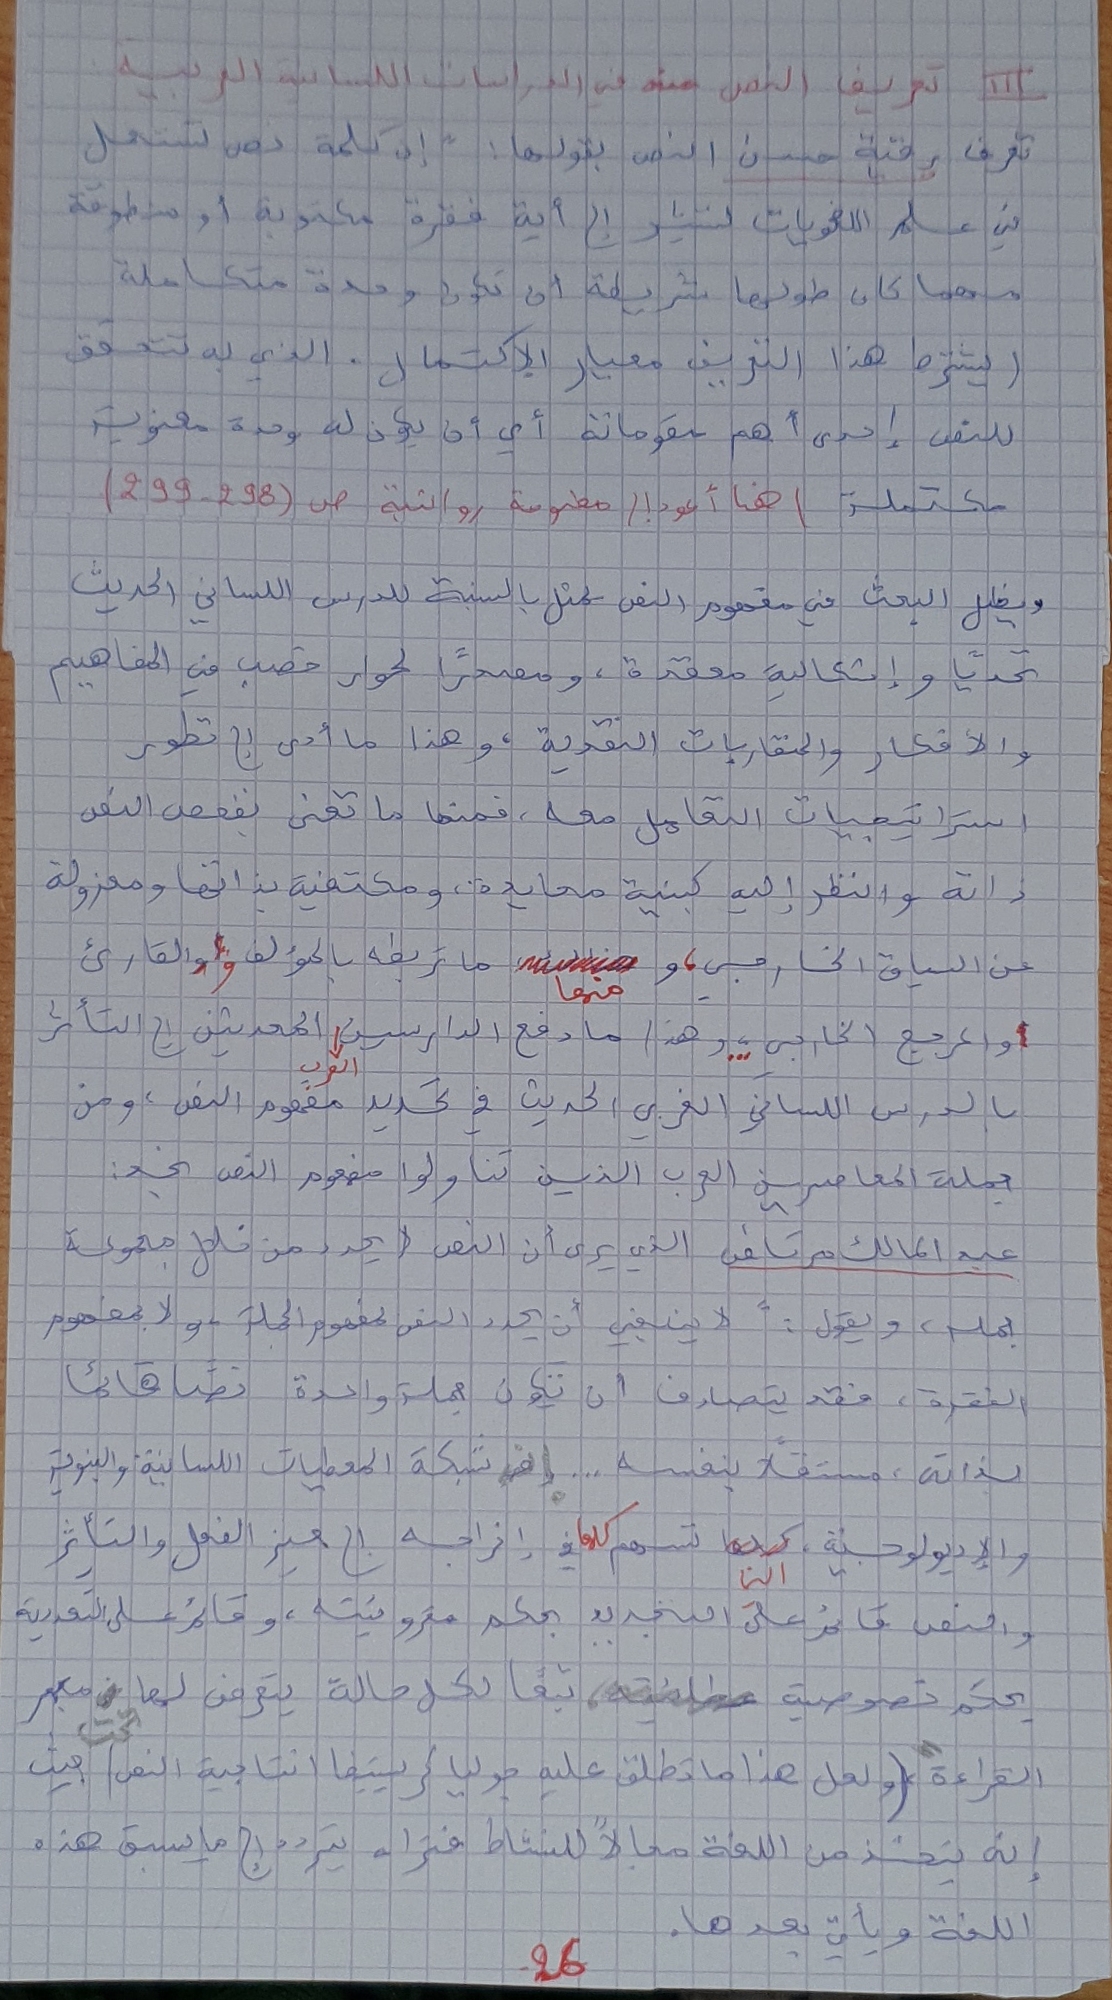 III تعريف النص عند في الدراسات اللسانية العربية:
تعرف رقية حسن النص بقولها: "إن كلمة نص تستعمل
في علم اللغويات لتشير إلى أية فقرة مكتوبة أو منطوقة
مهما كان طولها شريطة أن تكون وحدة متكاملة
(يشترط هذا التعريف معيار الاكتمال. الذي به تتحقق
للنص إحدى أهم مقوماته أي أن يكون له وحدة معنوية
مكتملة) هنا أعود إلى مفهومة روانية ص (298-299)
ويظل البحث في مفهوم النص يمثل بالنسبة للدرس اللساني الحديث
تحديًا وإشكالية معقدة، ومصدرًا لحوار خصب في المفاهيم
والأفكار والمقاربات النقدية، وهذا ما أدى إلى تطور
استراتيجيات التعامل معه، فمنها ما تعنى بفحص النص
ذاته والنظر إليه كبنية محايدة، ومكتفية بذاتها ومعزولة
عن السياق الخارجي، و منها ما تربطه بالمؤلف والقارئ
والمرجع الخارجي، وهذا ما دفع الدارسين العرب المحدثين إلى التأثر
بالدرس اللساني الغربي الحديث في تحديد مفهوم النص، ومن
جملة المعاصرين العرب الذين تناولوا مفهوم النص نجد:
عبد المالك مرتاض الذي يرى أن النص لا يحدد من خلال مجموعة
جمله، ويقول: "لا ينبغي أن يحدد النص بمفهوم الجملة، ولا بمفهوم
الفقرة، فقد يتصادف أن تكون جملة واحدة نصًا قائمًا
بذاته، مستقلًا بنفسه... شبكة المعطيات اللسانية والبنوية
والإديولوجية، تسهم كلها في إخراجه إلى حيز الفعل والتأثر
والنص قائم على التجديد بحكم مقروئيته، وقائم على التعددية
بحكم خصوصية تبعًا لكل حالة يتعرض لها تحت مجهر
القراءة، (ولعل هذا ما تطلق عليه جوليا كريستيفا انتاجية النص) حيث
إنه يتخذ من اللغة مجالاً للنشاط فتراه يتردد إلى ما يسبق هذه
اللغة ويأتي بعدها.
26